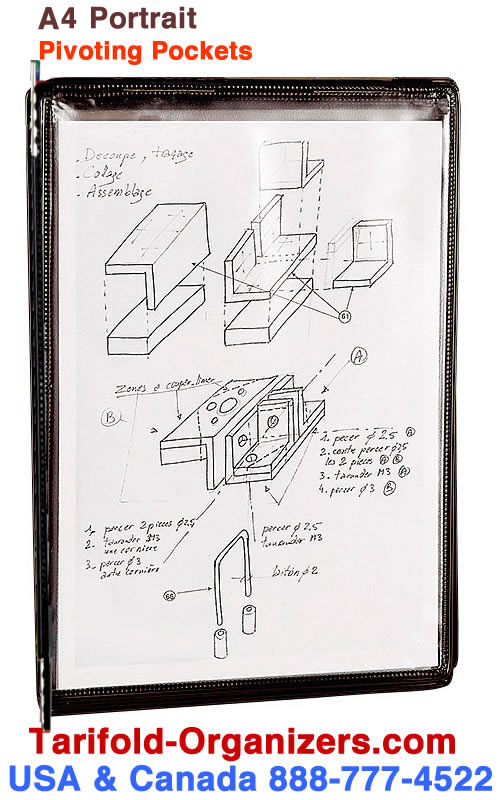 A4 Portrait
Pivoting Pockets
- Decoupe, traçage
- Collage
- Assemblage
61
A
Zones à couper limer
B
1. percer ø 2,5 A
2. contre percer ø2,5
les 2 pieces A B
3. tarauder M3 A
4. percer ø 3 B
1. percer 2 pieces ø2,5
2. tarauder M3
une cornière
3. percer ø 3
autre cornière
percer ø 2,5
tarauder M3
66
laiton ø 2
Tarifold-Organizers.com
USA & Canada 888-777-4522